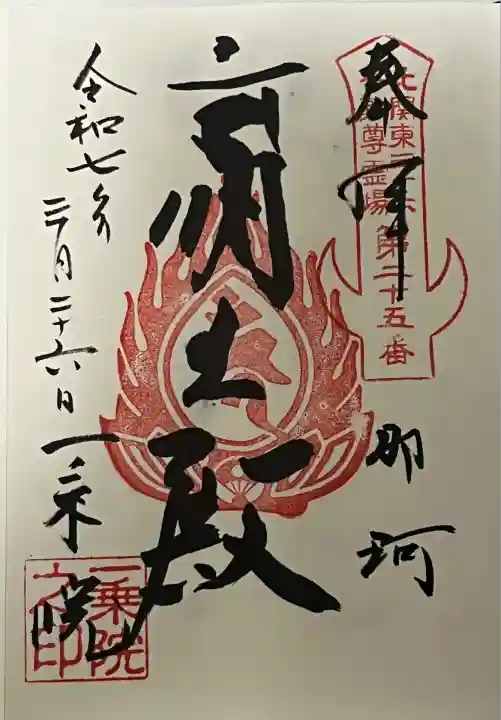 奉拝
北関東三十六
不動尊霊場第二十五番
那珂
明王殿
令和七年
三月二十六日
一乗院
一乗院
之印